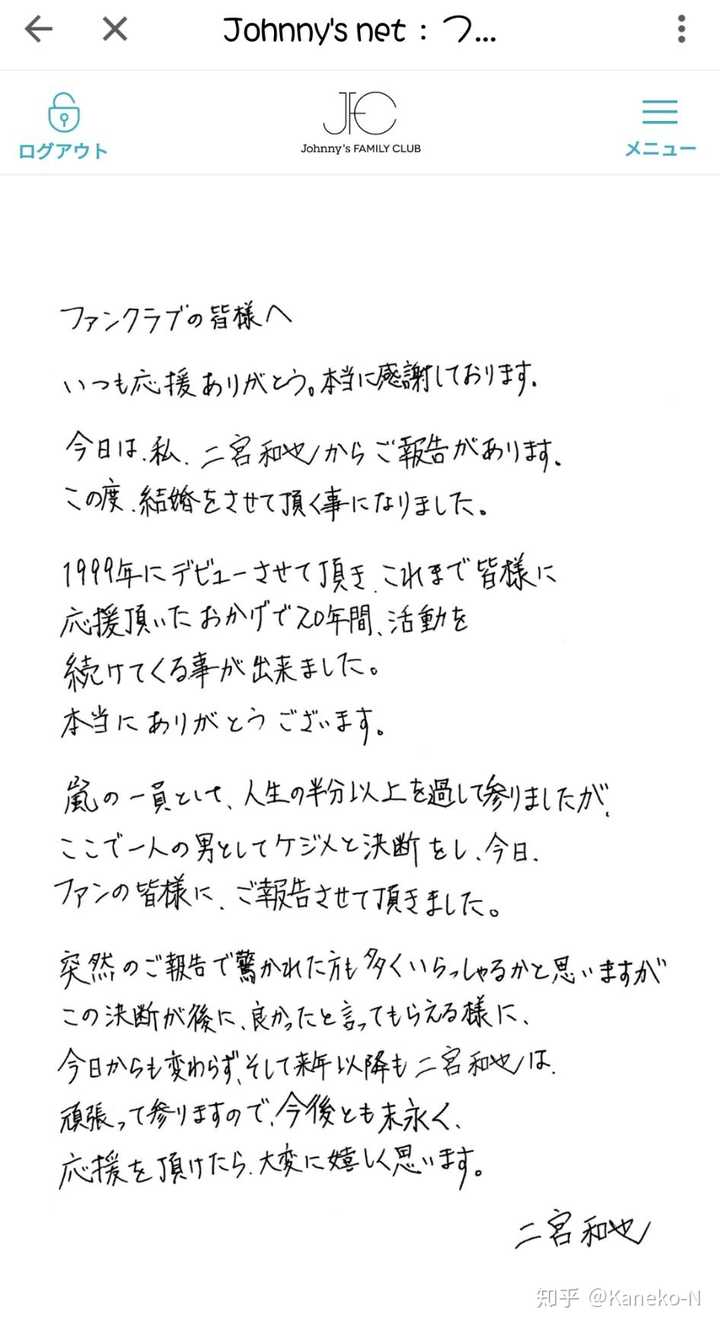 Johnny's net : つ...
ログアウト
JFC
Johnny's FAMILY CLUB
メニュー
ファンクラブの皆様へ
いつも応援ありがとう。本当に感謝しております。
今日は、私、二宮和也からご報告があります。
この度、結婚をさせて頂く事になりました。
1999年にデビューさせて頂き、これまで皆様に
応援頂いたおかげで20年間、活動を
続けてくる事が出来ました。
本当にありがとうございます。
嵐の一員として、人生の半分以上を過して参りましたが、
ここで一人の男としてケジメと決断をし、今日、
ファンの皆様に、ご報告させて頂きました。
突然のご報告で驚かれた方も多くいらっしゃるかと思いますが
この決断が後に、良かったと言ってもらえる様に、
今日からも変わらず、そして来年以降も二宮和也は、
頑張って参りますので、今後とも末永く、
応援を頂けたら、大変に嬉しく思います。
二宮和也
知乎 @Kaneko-N